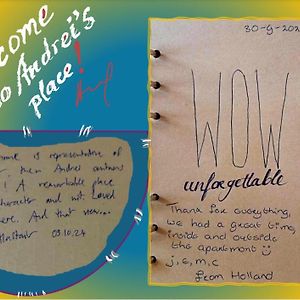 come
to Andrei's
place!
ome is representative of
then Andrei
! A remarkable place
character and not loved
ere. And that view...
Alistair 03.10.24
30-9-202
WOW
unforgettable
Thank you for everything,
we had a great time,
inside and outside
the apartment
j, e, m, c
from Holland